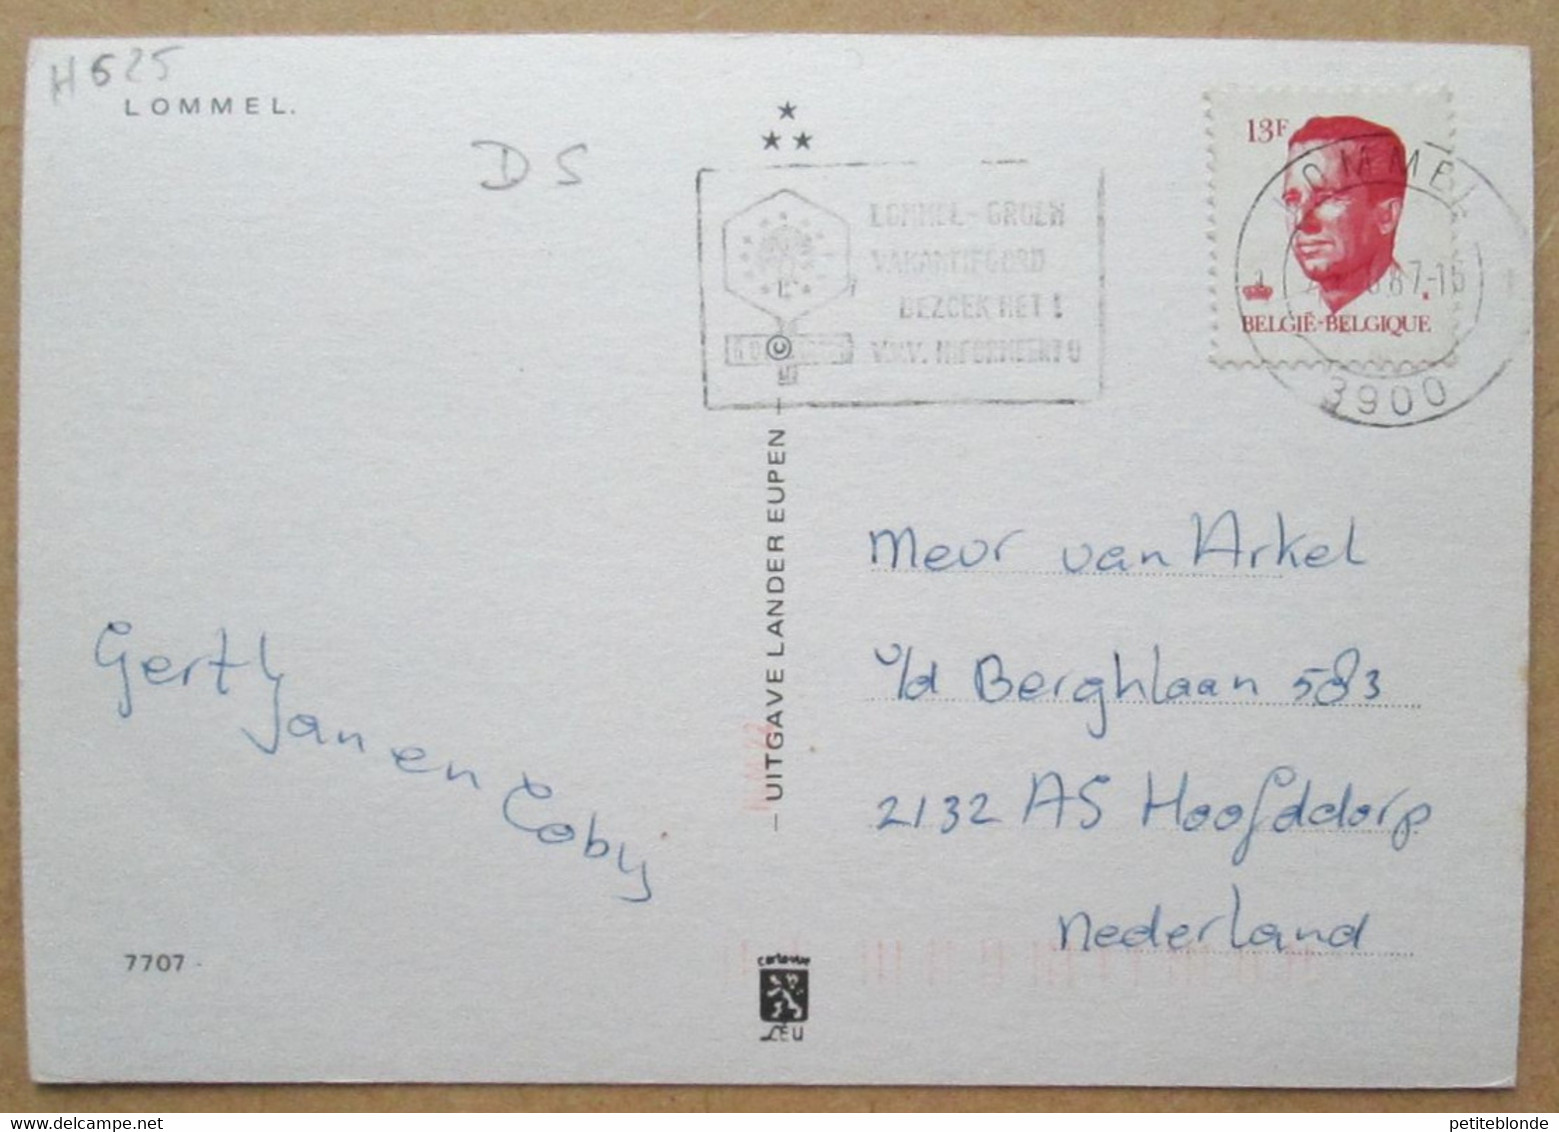 H 525
LOMMEL.
DS
LOMMEL - GROEN
VAKANTIEOORD
BEZOEK HET !
V.V.V. INFORMEERT U
13F
BELGIË-BELGIQUE
LOMMEL
87-16
3900
©
— UITGAVE LANDER EUPEN —
Gertj
Jan en Coby
Mevr van Arkel
v/d Berghlaan 583
2132 AS Hoofddorp
Nederland
7707
LEU
petiteblonde